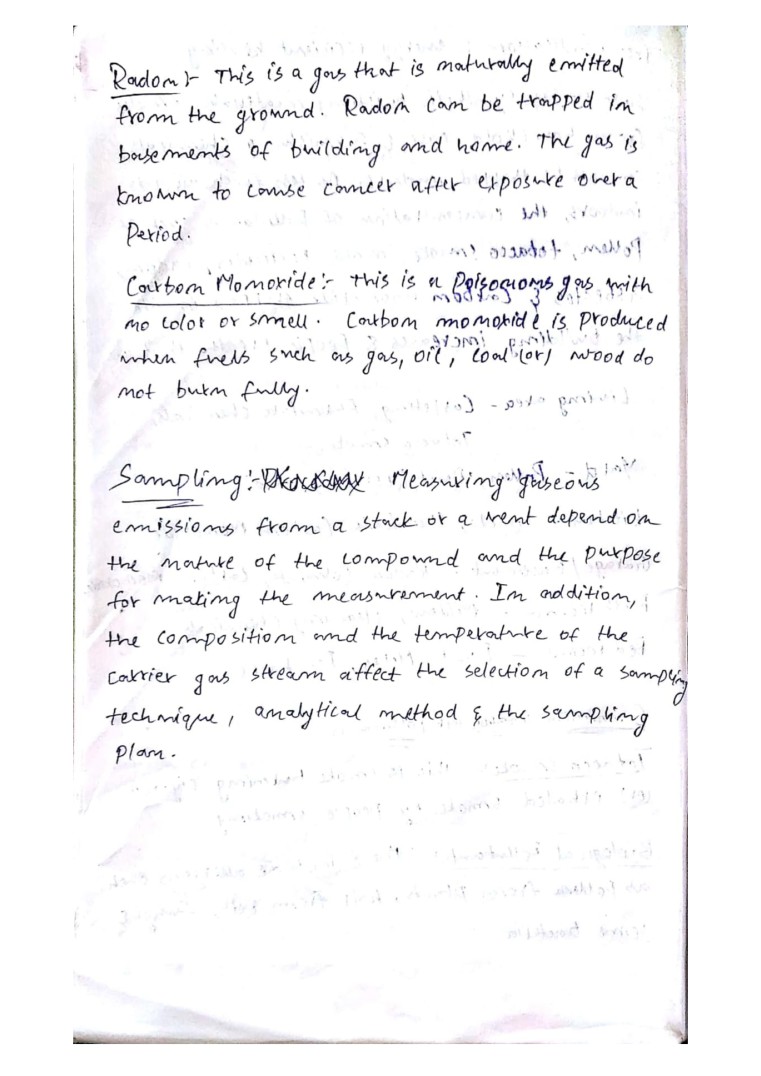 Radon :- This is a gas that is naturally emitted
from the ground. Radon can be trapped in
basements of building and home. The gas is
known to cause cancer after exposure over a
Period.
Carbon Monoxide :- This is a Poisonous gas with
no color or smell. Carbon monoxide is produced
when fuels such as gas, oil, coal (or) wood do
not burn fully.
Sampling :- Measuring gaseous
emissions from a stack or a vent depend on
the nature of the compound and the purpose
for making the measurement. In addition,
the composition and the temperature of the
carrier gas stream affect the selection of a sampling
technique, analytical method & the sampling
plan.